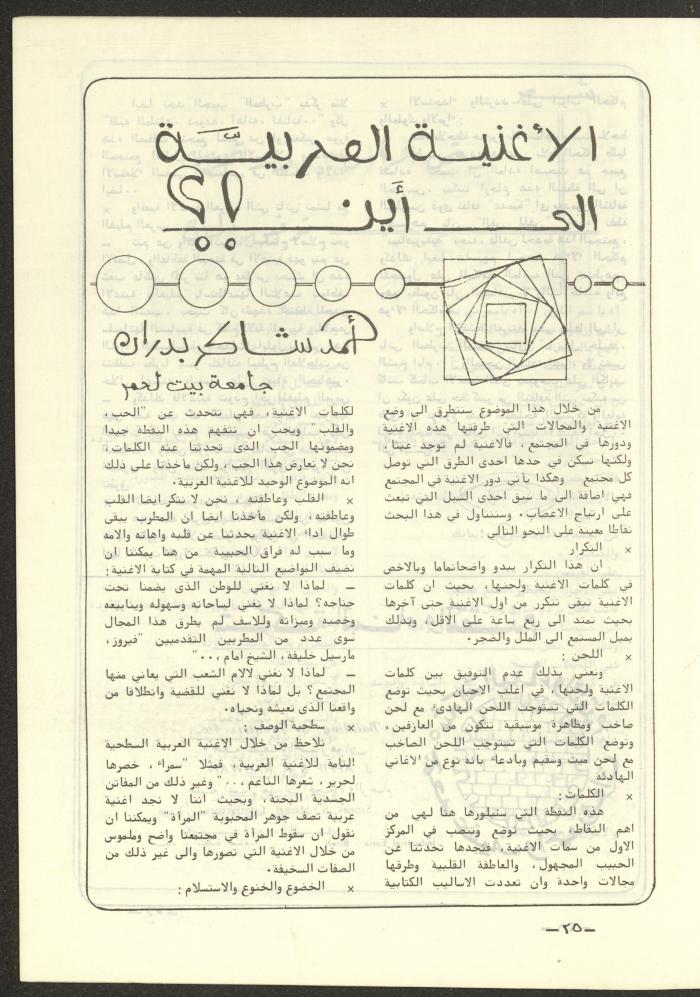 الأغنية العربية
الى أين ؟؟
أحمد شاكر بدران
جامعة بيت لحم
من خلال هذا الموضوع سنتطرق الى وضع
الاغنية والمجالات التي طرقتها هذه الاغنية
ودورها في المجتمع ، فالاغنية لم توجد عبثا،
ولكنها تسكن في حدها احدى الطرق التي توصل
كل مجتمع وهكذا يأتي دور الاغنية في المجتمع
فهي اضافة الى ما سبق احدى السبل التي تبعث
على ارتياح الاعصاب. وسنتناول في هذا البحث
نقاطا معينة على النحو التالي :
× التكرار
ان هذا التكرار يبدو واضحاتماما وبالاخص
في كلمات الاغنية ولحنها، بحيث ان كلمات
الاغنية تبقى تتكرر من اول الاغنية حتى آخرها
بحيث تمتد الى ربع ساعة على الاقل، وبذلك
يميل المستمع الى الملل والضجر.
× اللحن :
ونعني بذلك عدم التوفيق بين كلمات
الاغنية ولحنها، في اغلب الاحيان بحيث توضع
الكلمات التي تستوجب اللحن الهادىء مع لحن
صاخب ومظاهرة موسيقية تتكون من العازفين،
وتوضع الكلمات التي تستوجب اللحن الصاخب
مع لحن ميت وسقيم وبادعاء بانه نوع من الاغاني
الهادئة
× الكلمات :
هذه النقطة التي سنبلورها هنا لهي من
اهم النقاط، بحيث توضع وتنصب في المركز
الاول من سمات الاغنية، فنجدها تحدثنا عن
الحبيب المجهول، والعاطفة القلبية وطرقها
مجالات واحدة وان تعددت الاساليب الكتابية
لكلمات الاغنية، فهي تتحدث عن "الحب،
والقلب" ويجب ان نتفهم هذه النقطة جيدا
ومضمونها الحب الذى تحدثنا عنه الكلمات،
نحن لا نعارض هذا الحب ، ولكن مأخذنا على ذلك
انه الموضوع الوحيد للاغنية العربية.
× القلب وعاطفته ، نحن لا ننكر ايضا القلب
وعاطفته، ولكن مأخذنا ايضا ان المطرب يبقى
طوال اداء الاغنية يحدثنا عن قلبه واهاته والامه
وما سبب له فراق الحبيبة من هنا يمكننا ان
نضيف المواضيع التالية المهمة في كتابة الاغنية:
ــ لماذا لا نغني للوطن الذى يضمنا تحت
جناحه؟ لماذا لا نغني لساحاته وسهوله وينابيعه
وخصبه وميزاته وللاسف لم يطرق هذا المجال
سوى عدد من المطربين التقدميين "فيروز،
مارسيل خليفة، الشيخ امام ،.."
ــ لماذا لا نغني لالام الشعب التي يعاني منها
المجتمع؟ بل لماذا لا نغني للقضية وانطلاقا من
واقعنا الذى نعيشه ونحياه.
× سطحية الوصف :
نلاحظ من خلال الاغنية العربية السطحية
التامة للاغنية العربية، فمثلا "سمراء، خصرها
لحرير، شعرها الناعم ،.." وغير ذلك من المفاتن
الجسدية البحتة، وبحيث اننا لا نجد اغنية
عربية تصف جوهر المحبوبة "المرأة" ويمكننا ان
نقول ان سقوط المرأة في مجتمعنا واضح وملموس
من خلال الاغنية التي تصورها والى غير ذلك من
الصفات السخيفة.
× الخضوع والخنوع والاستسلام :
ــ٢٥ــ